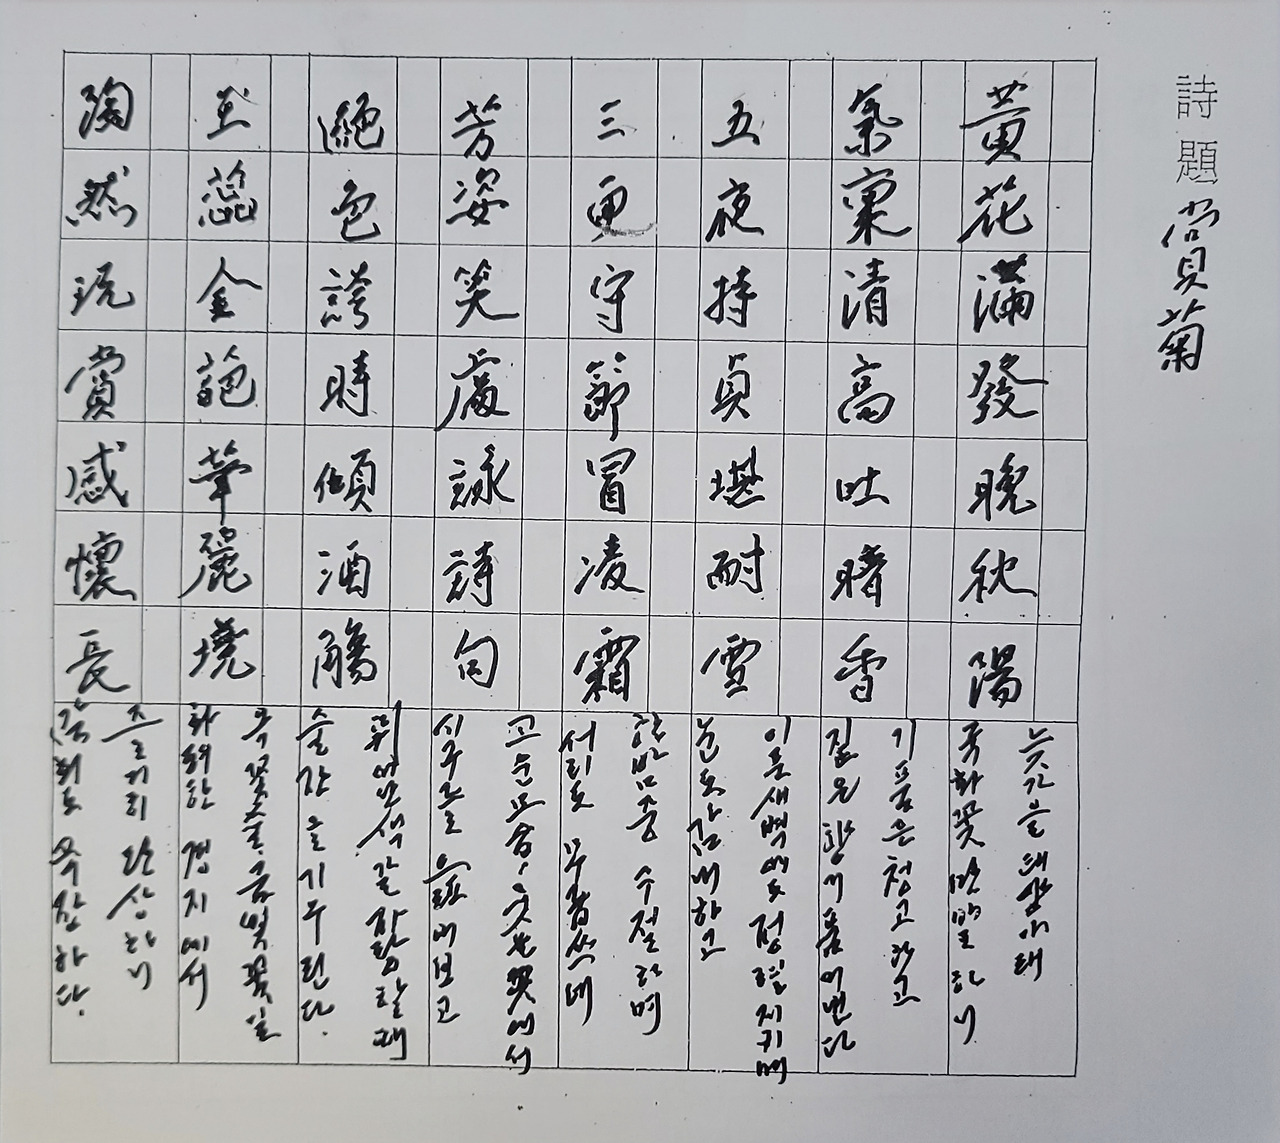 詩題 賞菊
黃花滿發晩秋陽
늦가을 태양아래
국화꽃 만발하니
氣稟清高吐暗香
기품은 청고하고
짙은 향기 품어낸다
五夜持貞堪耐雪
이른새벽에도 정렬지키며
눈도 감내하고
三更守節冒凌霜
한밤중 수절하며
서리도 무릅쓰네
芳姿笑處詠詩句
고운모습, 웃는 꽃에서
시구를 읊어보고
絕色誇時傾酒觴
뛰어난 색깔 자랑할때
술잔을 기우린다.
玉蕊金葩華麗境
옥꽃술, 금빛꽃잎
화려한 경지에서
陶然玩賞感懷長
즐거히 완상하니
감회도 욱장하다.